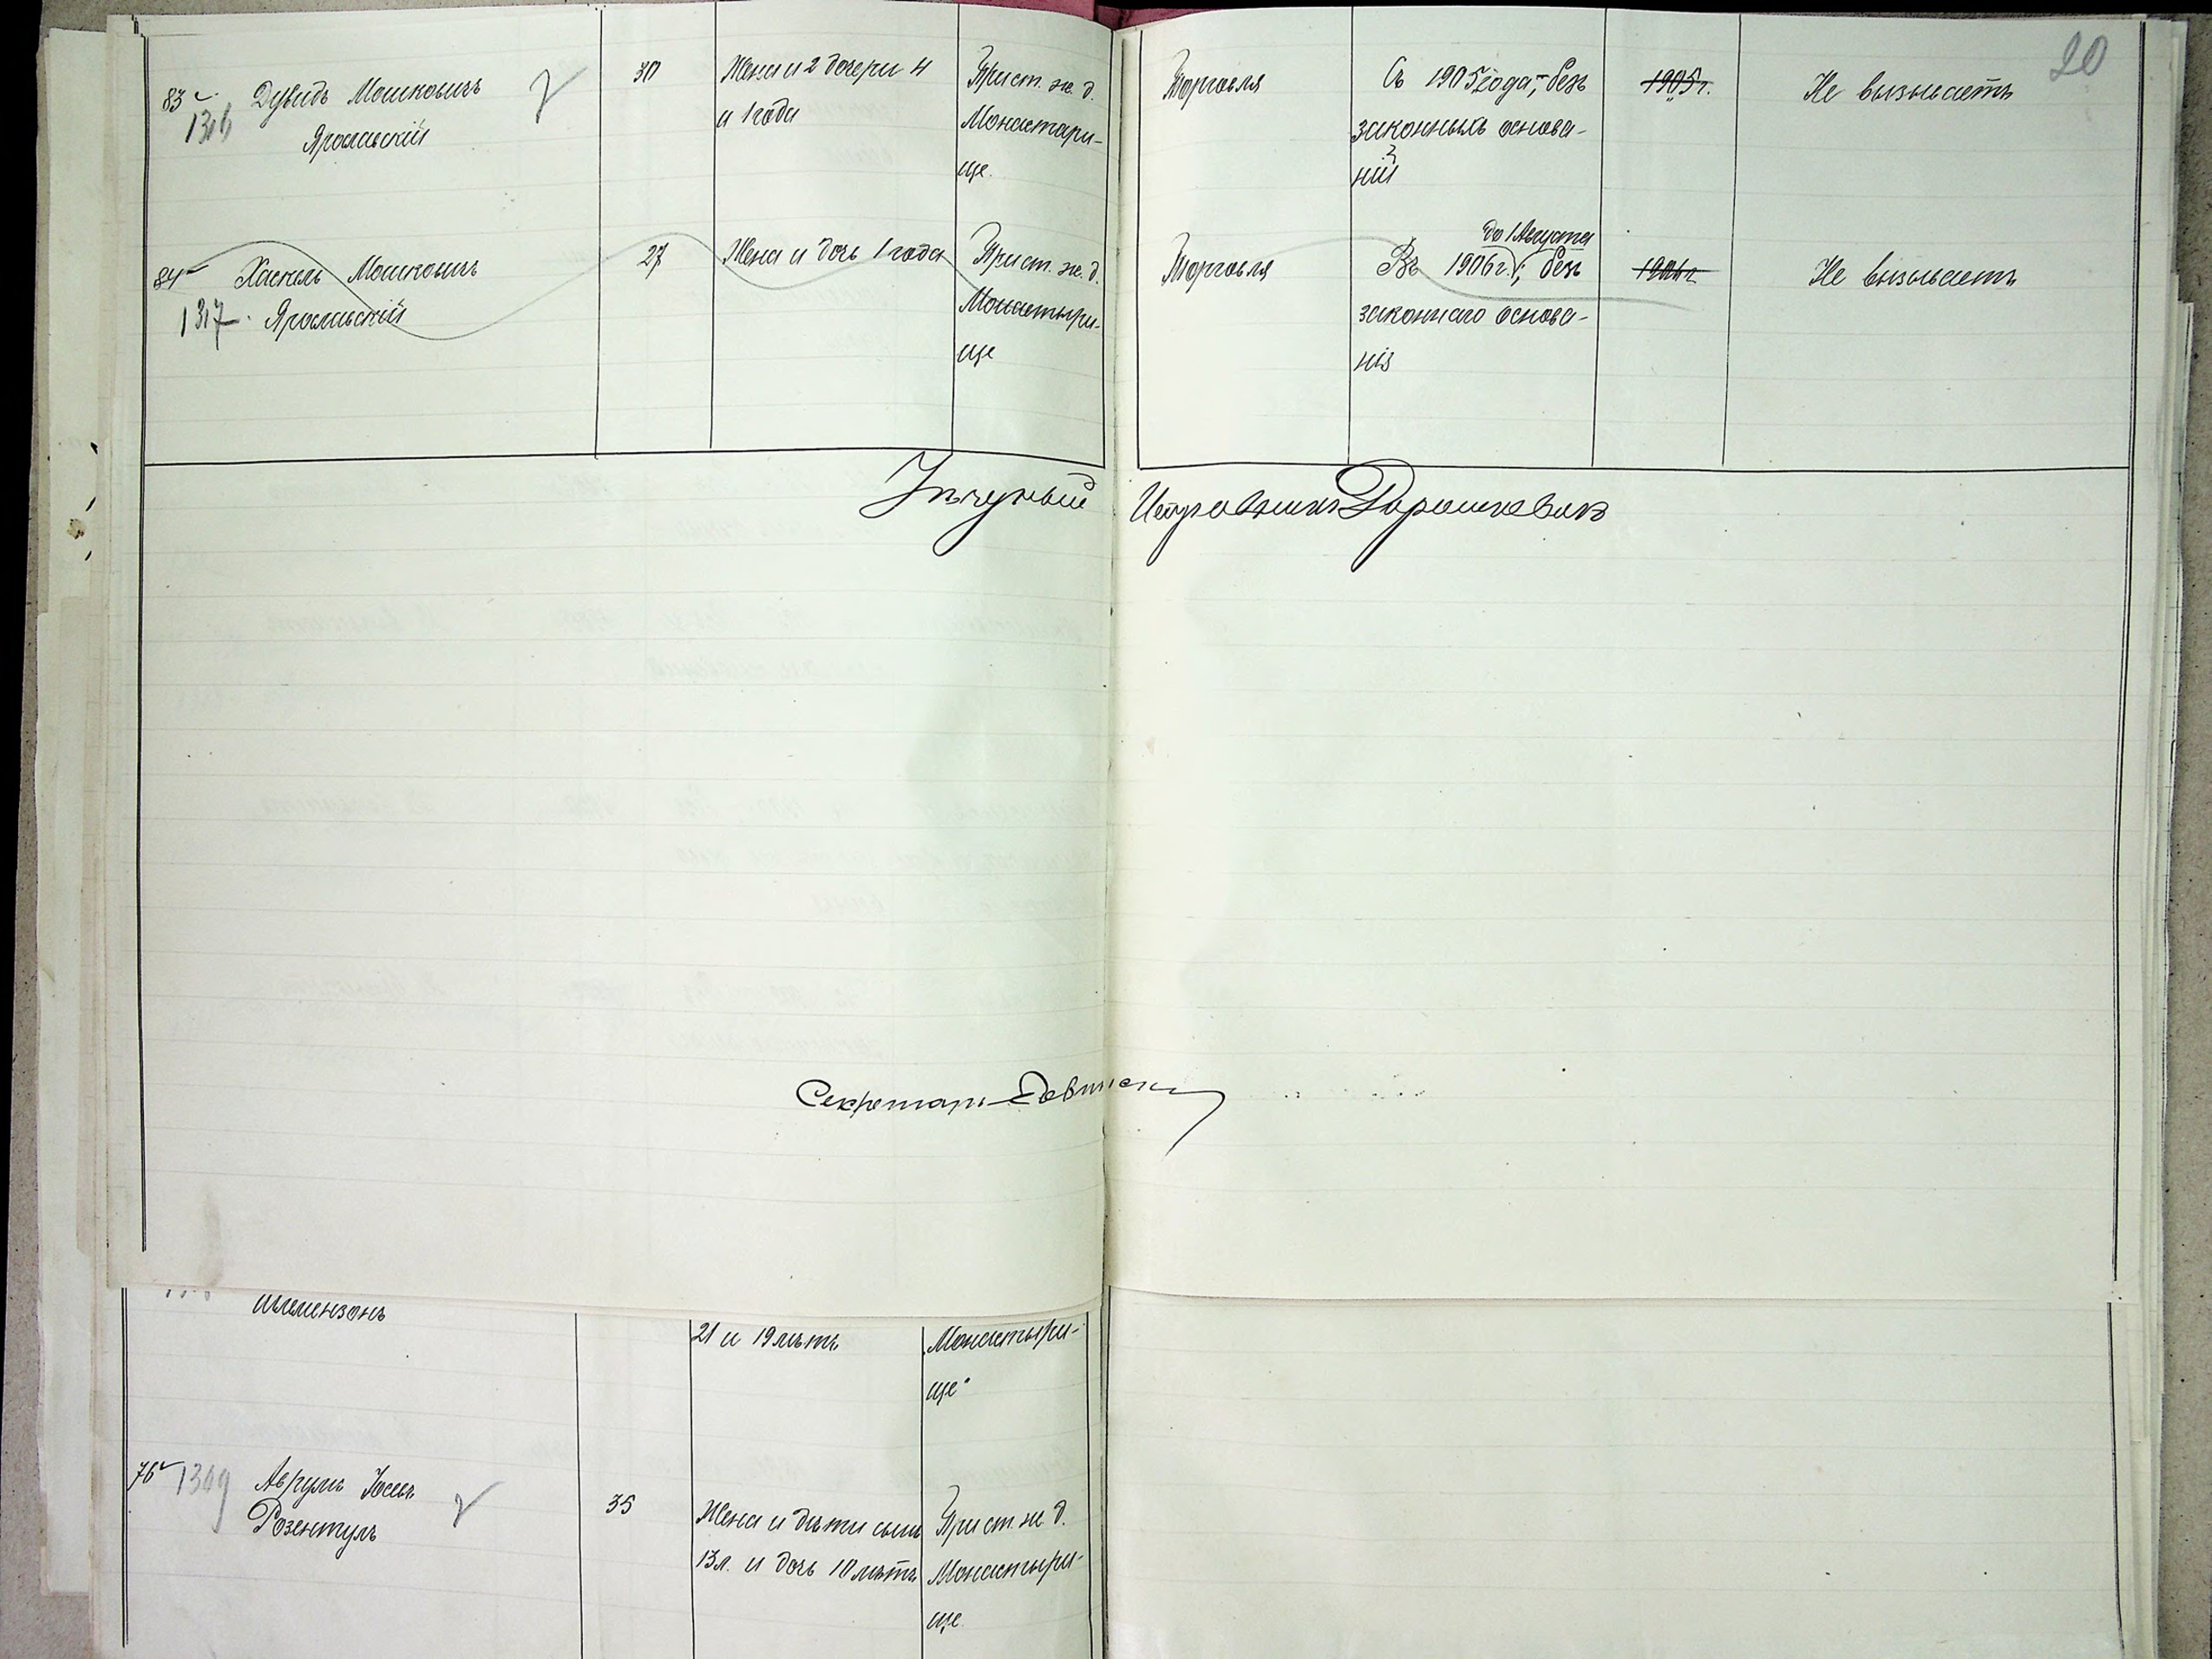 20
83 Дувидъ Мошковичъ
1316 Ярославскій
30
Жена и 2 дочери 4
и 1 года
Прист. ж. д.
Монастыри-
ще.
Торговля
Съ 1905 года, безъ
законныхъ основа-
ній
1905 г.
Не вызываетъ
84 Хаскель Мошковичъ
1317. Ярославскій
27
Жена и дочь 1 года
Прист. ж. д.
Монастыри-
ще
Торговля
до 1 Августа
Въ 1906 г.; безъ
законнаго основа-
нія
1906 г.
Не вызываетъ
Уѣздный Исправникъ Дорошкевичъ
Секретарь
21 и 19 лѣтъ
Монастыри-
ще
76 1309 Аврумъ Іосевъ
Розентулъ
35
Жена и дѣти сынъ
13 л. и дочь 10 лѣтъ
Прист. ж. д.
Монастыри-
ще.